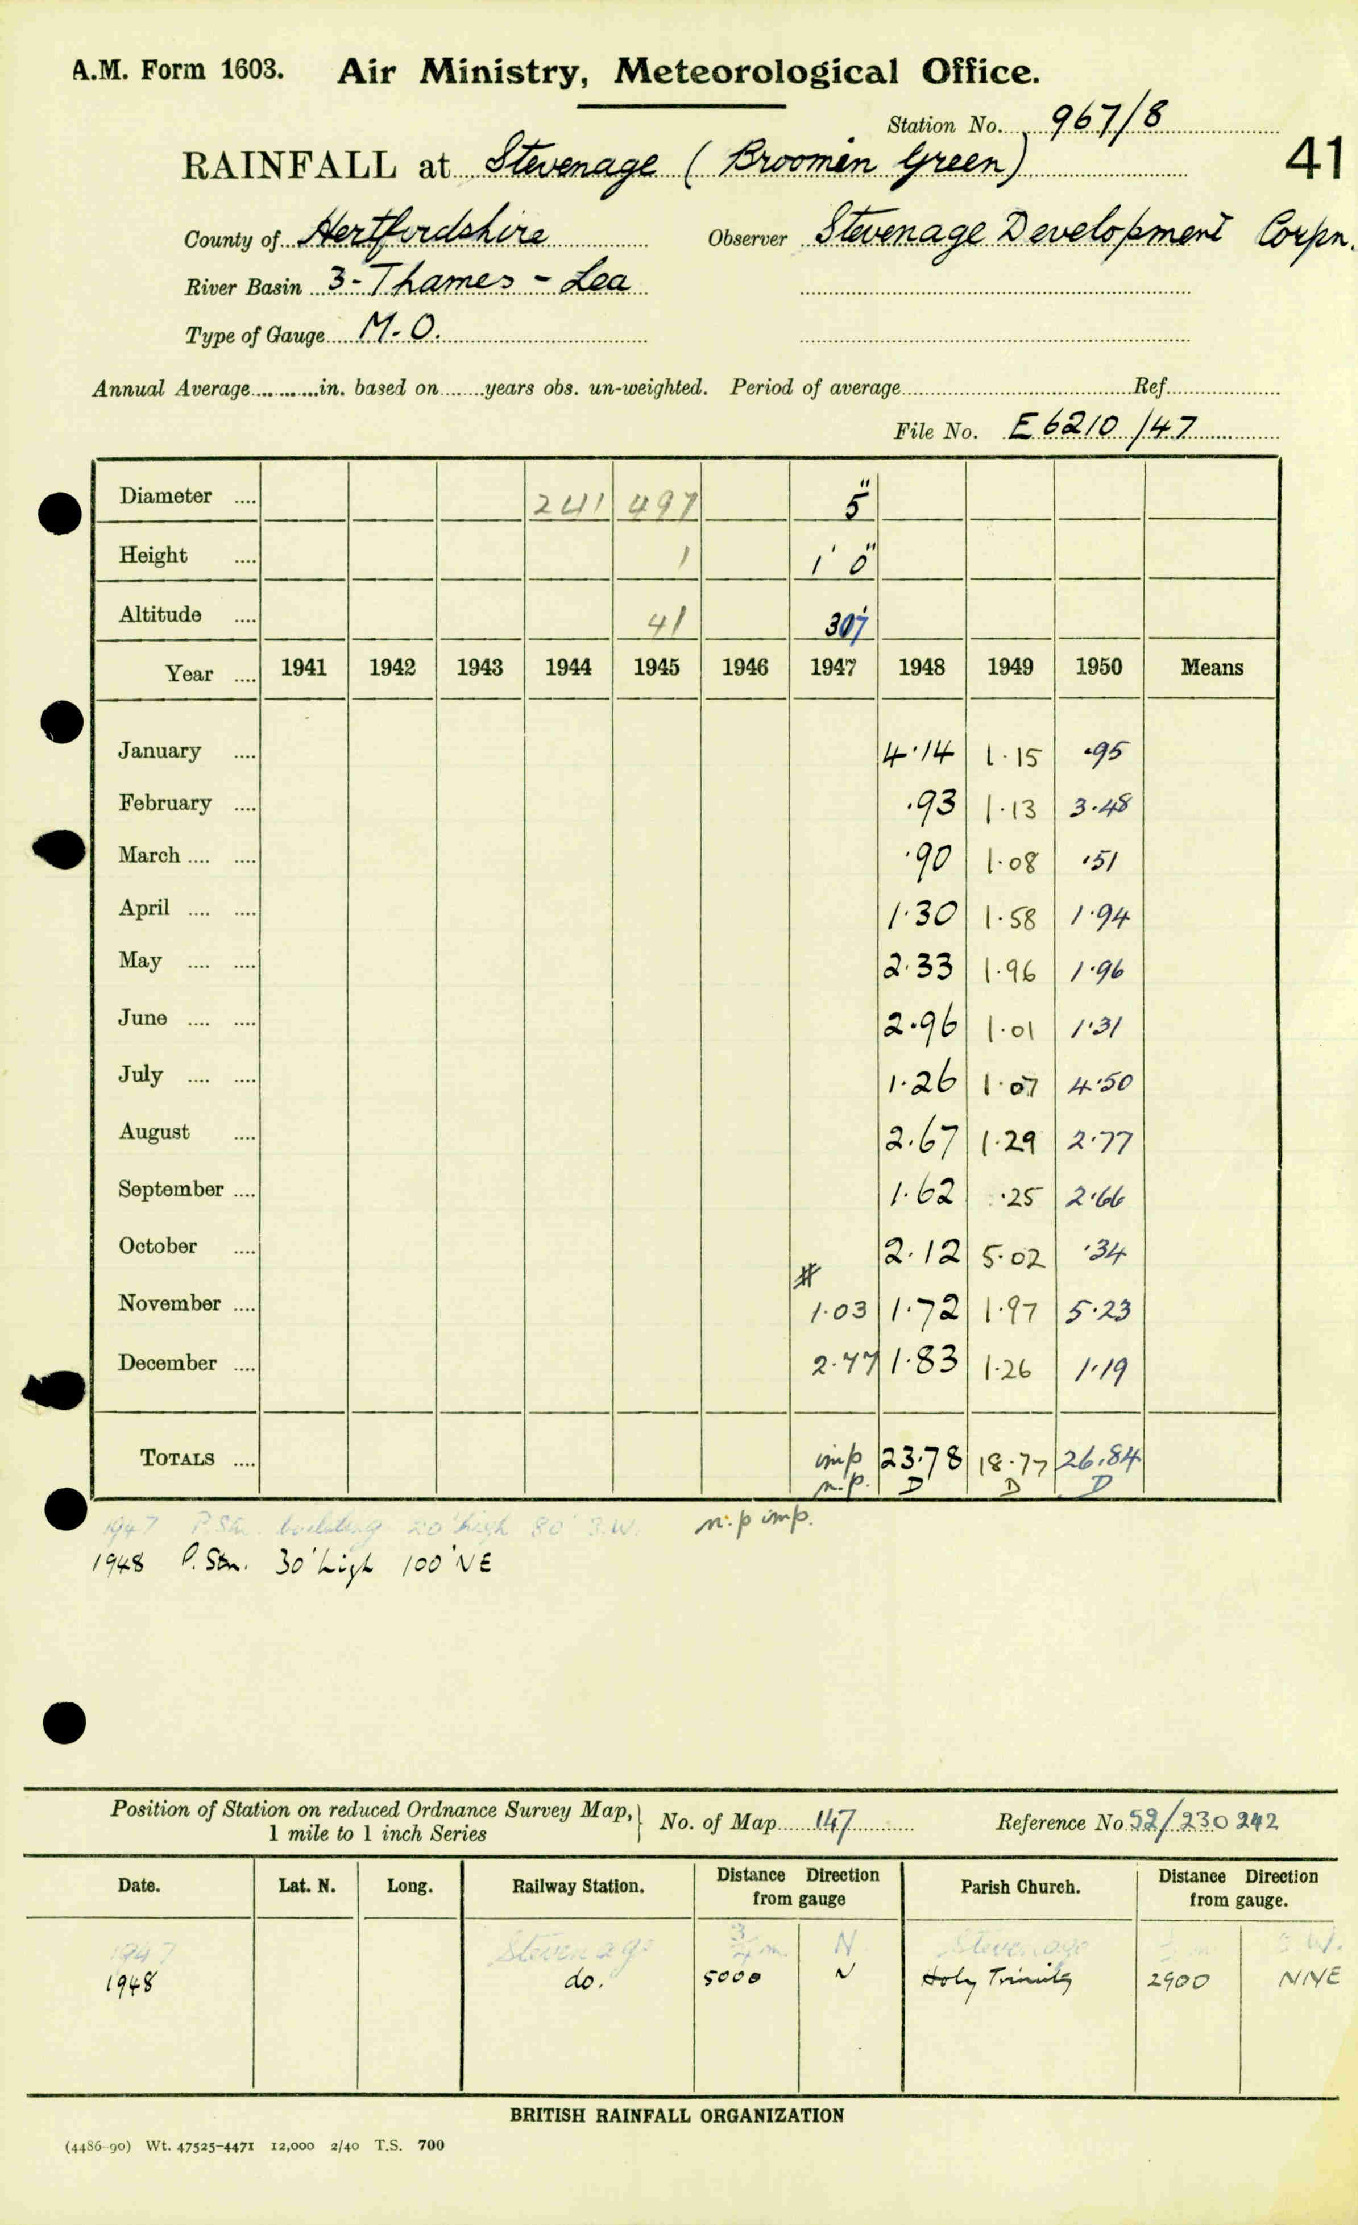 A.M. Form 1603. Air Ministry, Meteorological Office.
Station No. 967/8
RAINFALL at Stevenage (Broomin Green) 41
County of Hertfordshire Observer Stevenage Development Corpn.
River Basin 3-Thames - Lea
Type of Gauge M.O.
Annual Average............in. based on.......years obs. un-weighted. Period of average.......... Ref..........
File No. E6210/47
Diameter .... 241 497 5"
Height .... 1 1' 0"
Altitude .... 41 307'
Year .... 1941 1942 1943 1944 1945 1946 1947 1948 1949 1950 Means
January .... 4.14 1.15 .95
February .... .93 1.13 3.48
March .... .... .90 1.08 .51
April .... .... 1.30 1.58 1.94
May .... .... 2.33 1.96 1.96
June .... .... 2.96 1.01 1.31
July .... .... 1.26 1.07 4.50
August .... 2.67 1.29 2.77
September .... 1.62 .25 2.66
October .... 2.12 5.02 .34
#
November .... 1.03 1.72 1.97 5.23
December .... 2.77 1.83 1.26 1.19
TOTALS .... imp 23.78 18.77 26.84
n.p. D D D
1947 P.Stn. building 20' high 80' S.W. n.p imp.
1948 P.Stn. 30' high 100' NE
Position of Station on reduced Ordnance Survey Map,} No. of Map 147 Reference No 52/230 242
1 mile to 1 inch Series
Date. Lat. N. Long. Railway Station. Distance Direction from gauge Parish Church. Distance Direction from gauge.
1947 Stevenage 3/4 m. N. Stevenage S.W.
1948 do. 5000 N Holy Trinity 2900 NNE
BRITISH RAINFALL ORGANIZATION
(4486-90) Wt. 47525-4471 12,000 2/40 T.S. 700